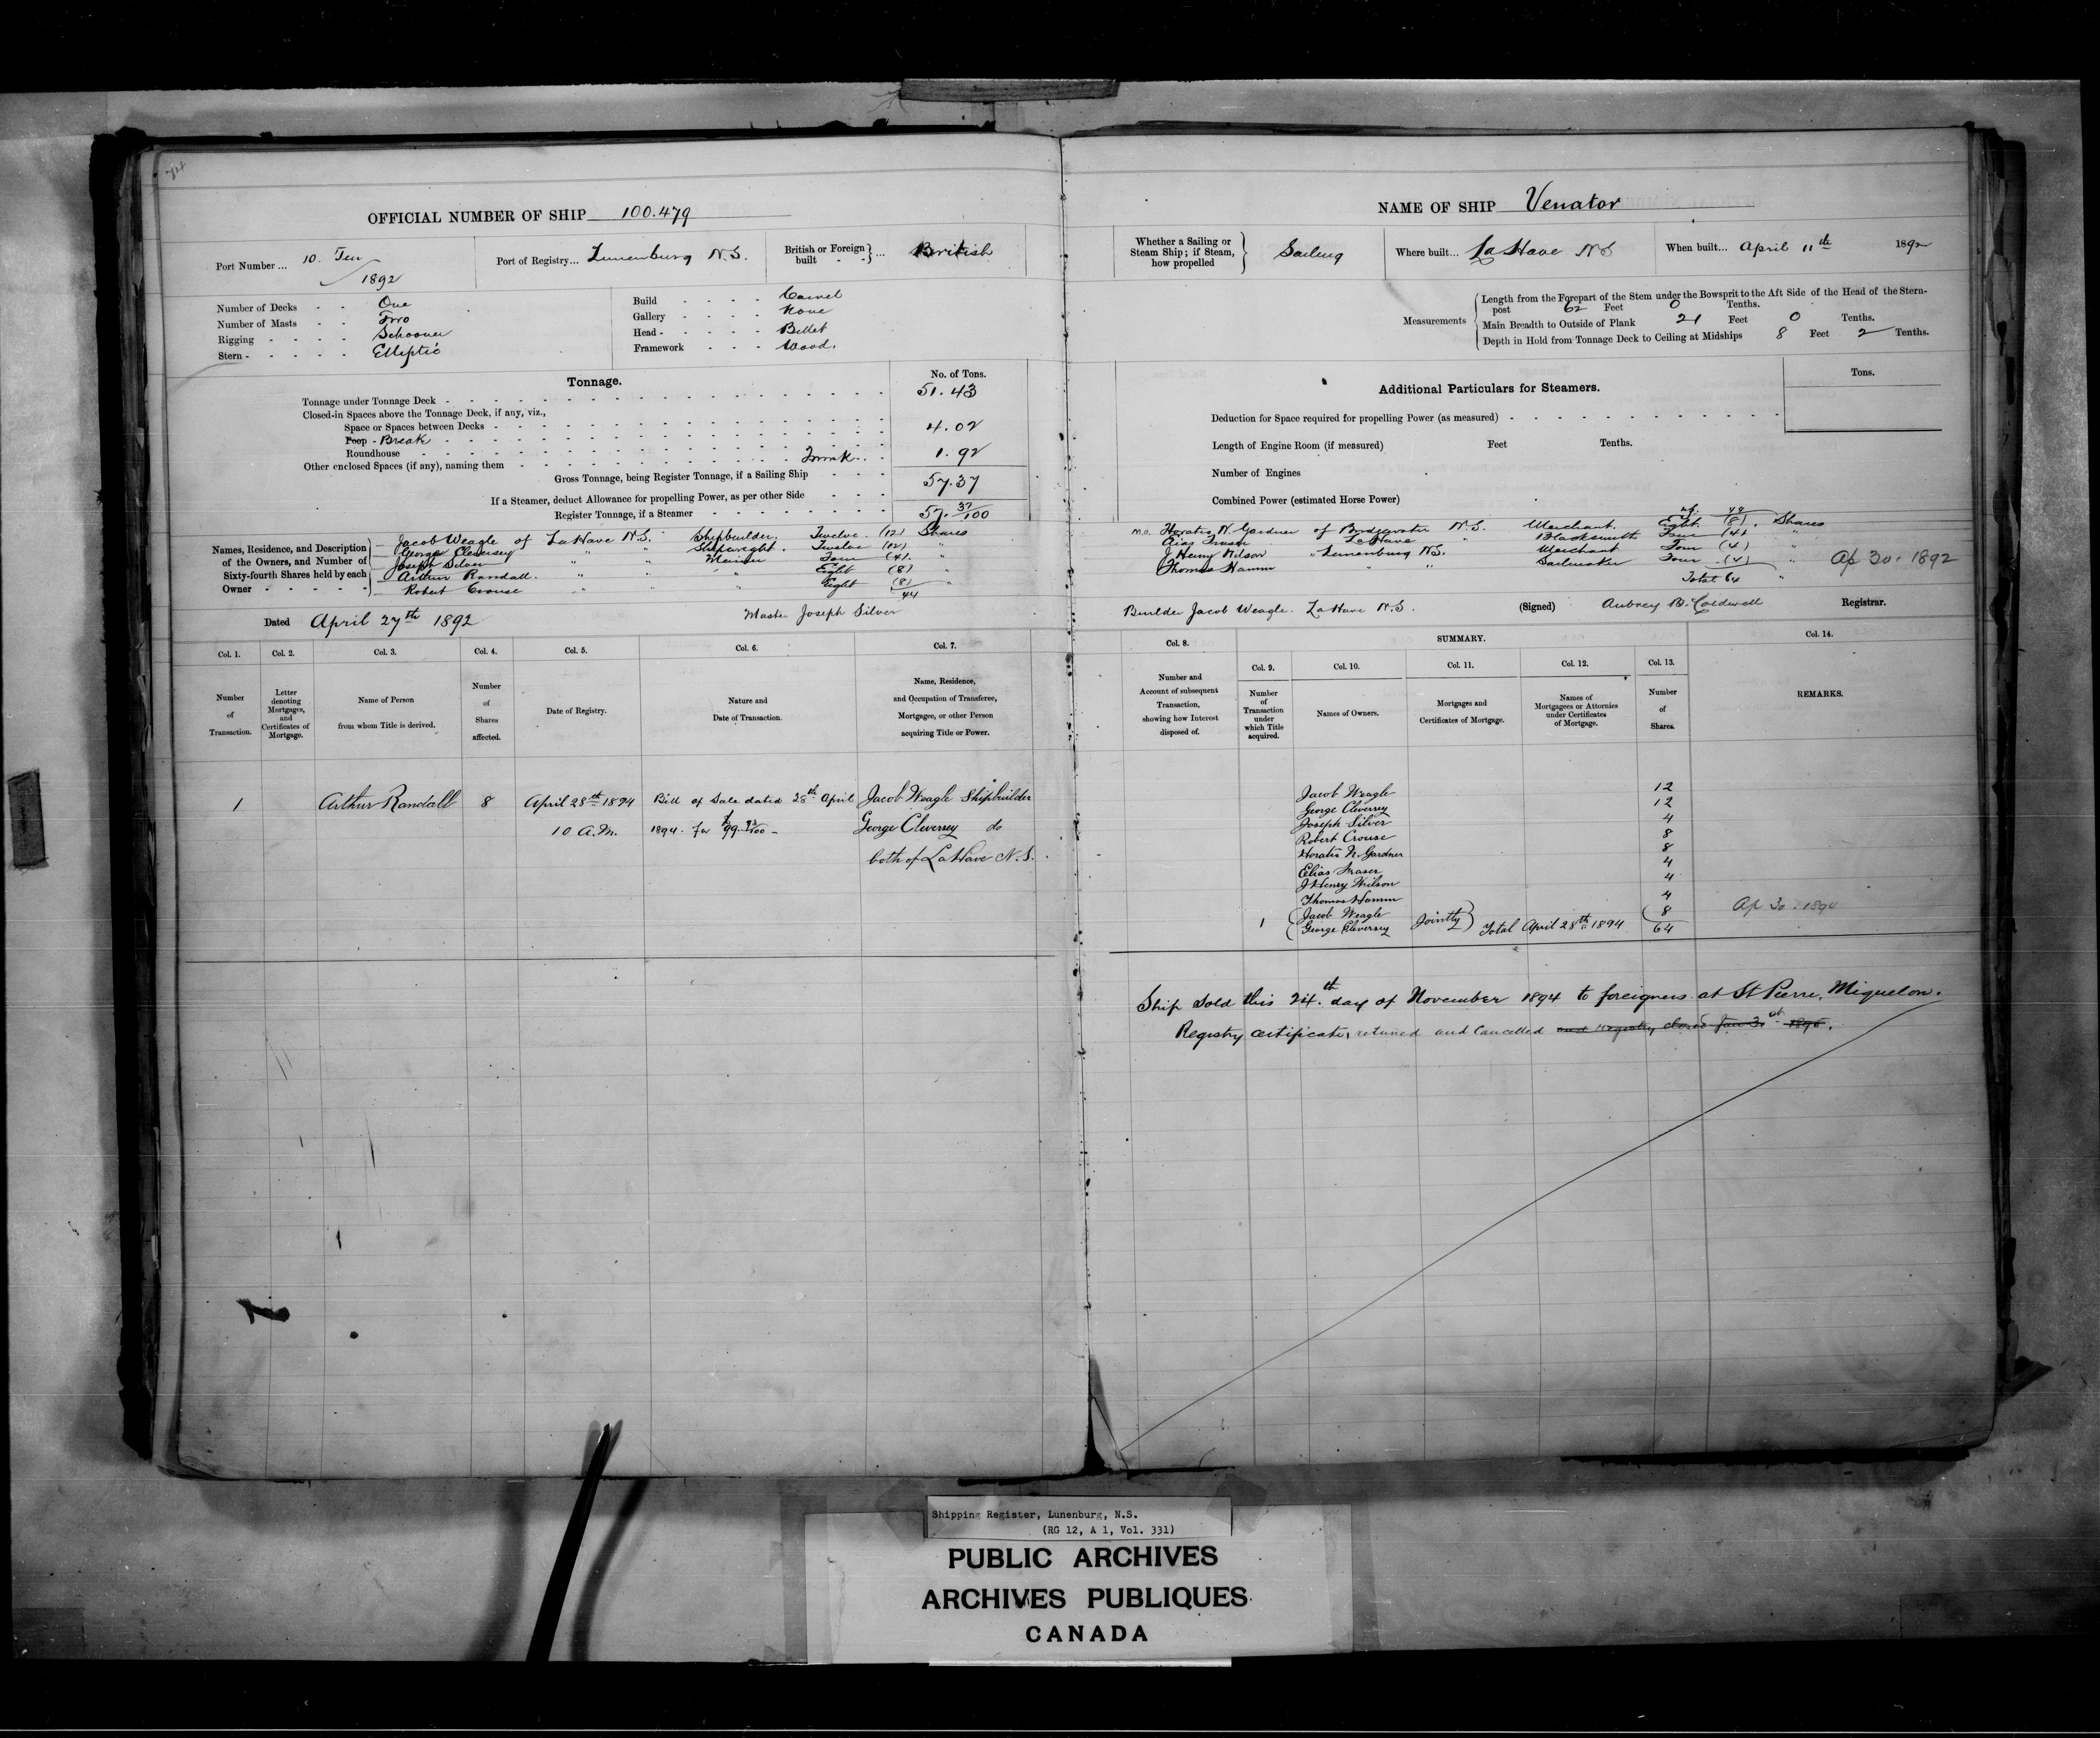 OFFICIAL NUMBER OF SHIP 100.479
Port Number ... 10. Ten
1892
Port of Registry... Lunenburg N.S.
British or Foreign built - - } ... British
Number of Decks - - One
Number of Masts - - Two
Rigging - - - - Schooner
Stern - - - - - Elliptic
Build - - - - Carvel
Gallery - - - - None
Head - - - - - Billet
Framework - - - Wood.
Tonnage.
No. of Tons.
Tonnage under Tonnage Deck - 51.43
Closed-in Spaces above the Tonnage Deck, if any, viz.,
Space or Spaces between Decks -
Poop - Break 4.02
Roundhouse
Other enclosed Spaces (if any), naming them - Trunk 1.92
Gross Tonnage, being Register Tonnage, if a Sailing Ship - - - 57.37
If a Steamer, deduct Allowance for propelling Power, as per other Side - - -
Register Tonnage, if a Steamer - 57. 37/100
Names, Residence, and Description of the Owners, and Number of Sixty-fourth Shares held by each Owner - - - - -
Jacob Weagle of LaHave N.S. Shipbuilder. Twelve. (12) Shares
George Cleversey " " Shipwright. Twelve (12) "
Joseph Silver " " Mariner Four (4). "
Arthur Randall. " " " Eight (8)
Robert Crouse " " Eight (8) "
44
Dated April 27th 1892
Master Joseph Silver
Col. 1.
Col. 2.
Col. 3.
Col. 4.
Col. 5.
Col. 6.
Col. 7.
Number of Transaction.
Letter denoting Mortgages, and Certificates of Mortgage.
Name of Person from whom Title is derived.
Number of Shares affected.
Date of Registry.
Nature and Date of Transaction.
Name, Residence, and Occupation of Transferee, Mortgagee, or other Person acquiring Title or Power.
1 Arthur Randall 8 April 28th 1894 Bill of Sale dated 28th April Jacob Weagle Shipbuilder
10 A.M. 1894. for George Cleversey do
both of LaHave N.S.
NAME OF SHIP Venator
Whether a Sailing or Steam Ship; if Steam, how propelled } Sailing
Where built... LaHave NS
When built... April 11th 1892
Measurements
Length from the Forepart of the Stem under the Bowsprit to the Aft Side of the Head of the Stern-
post 62 Feet 0 Tenths.
Main Breadth to Outside of Plank 21 Feet 0 Tenths.
Depth in Hold from Tonnage Deck to Ceiling at Midships 8 Feet 2 Tenths.
Additional Particulars for Steamers.
Tons.
Deduction for Space required for propelling Power (as measured) -
Length of Engine Room (if measured) Feet Tenths.
Number of Engines
Combined Power (estimated Horse Power)
44
M.O. Horatio N. Gardner of Bridgewater N.S. Merchant. Eight (8). Shares
Elias Fraser " LaHave " Blacksmith Four (4) "
J Henry Wilson " Lunenburg N.S. Merchant Four (4) "
Thomas Hamm " " Sailmaker Four (4) "
Total 64
Ap 30. 1892
Builder Jacob Weagle. LaHave N.S.
(Signed) Aubrey B. Caldwell Registrar.
Col. 8.
SUMMARY.
Col. 14.
Col. 9.
Col. 10.
Col. 11.
Col. 12.
Col. 13.
Number and Account of subsequent Transaction, showing how Interest disposed of.
Number of Transaction under which Title acquired.
Names of Owners.
Mortgages and Certificates of Mortgage.
Names of Mortgagees or Attornies under Certificates of Mortgage.
Number of Shares.
REMARKS.
Jacob Weagle 12
George Cleversey 12
Joseph Silver 4
Robert Crouse 8
Horatio N. Gardner 8
Elias Fraser 4
J Henry Wilson 4
Thomas Hamm 4
1 Jacob Weagle 8
George Cleversey Jointly Total April 28th 1894 64
Ap 30. 1894
Ship sold this 24th. day of November 1894 to foreigners at St Pierre, Miquelon.
Registry certificate, returned and Cancelled and registry closed
Shipping Register, Lunenburg, N.S.
(RG 12, A 1, Vol. 331)
PUBLIC ARCHIVES
ARCHIVES PUBLIQUES
CANADA